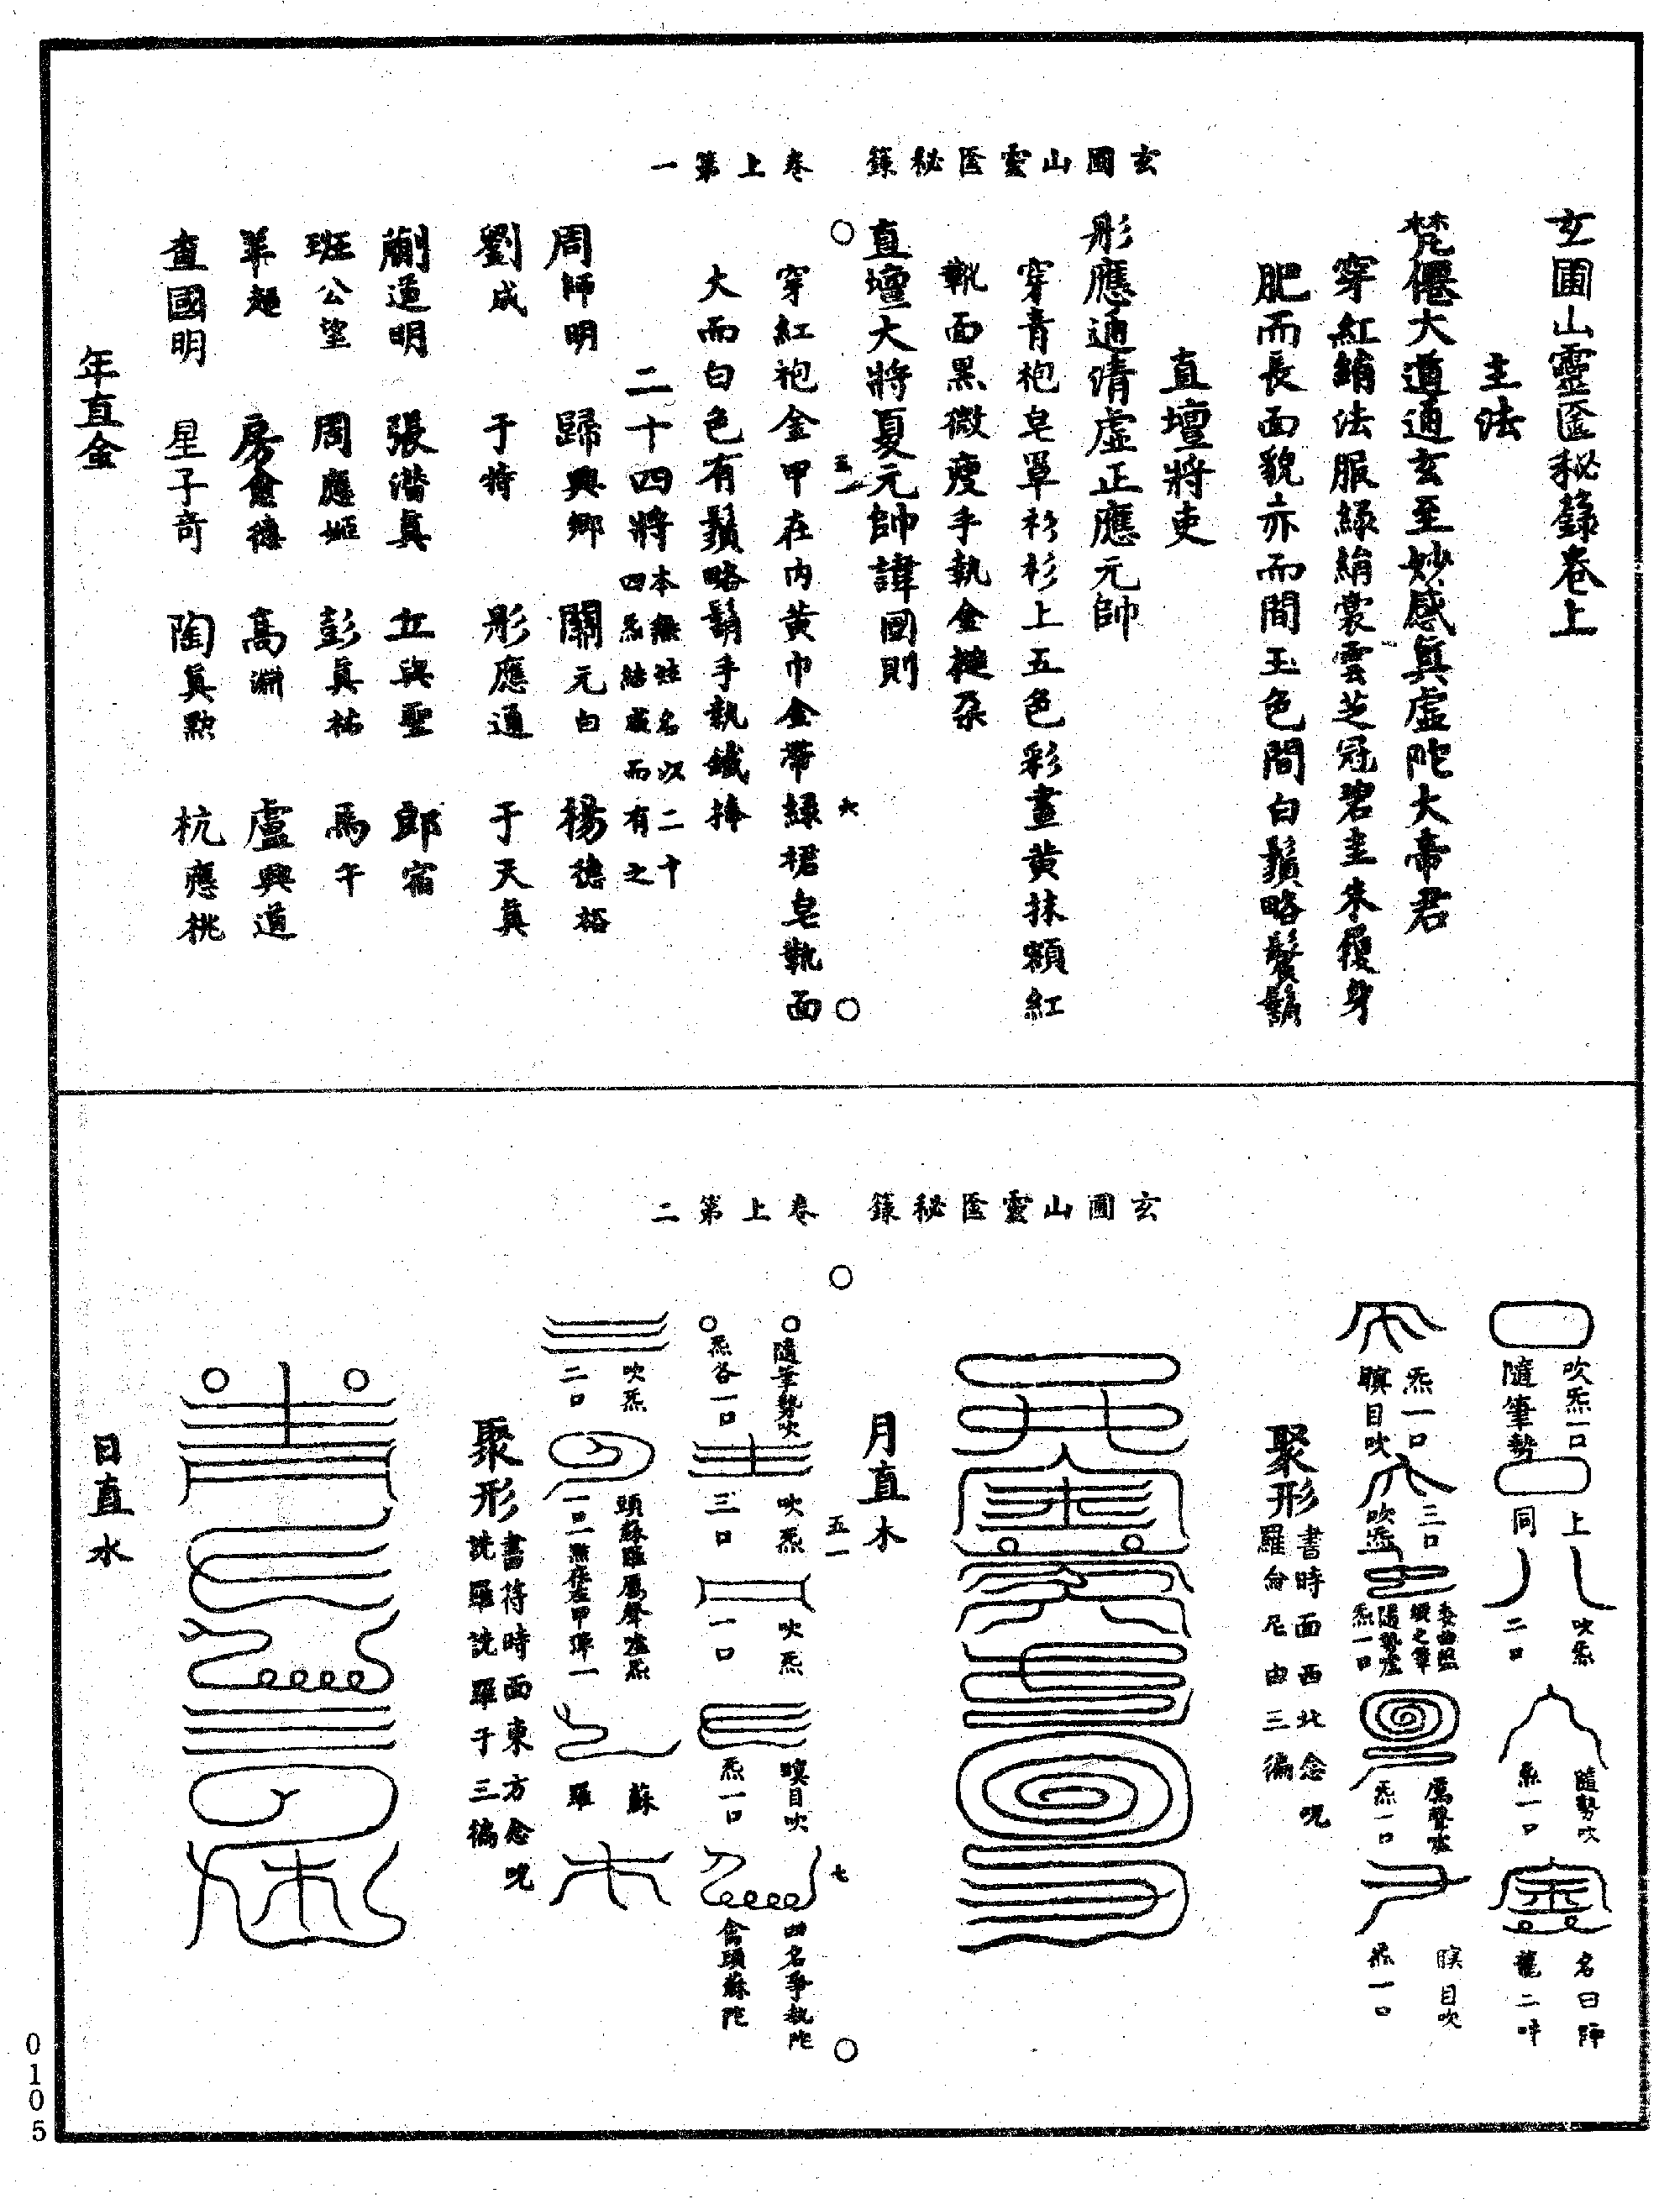 玄圃山靈匱秘籙 卷上第一
玄圃山靈匱秘籙卷上
主法
梵僊大道通玄至妙感眞虛陀大帝君
穿紅綃法服綠綃裳雲芝冠碧圭朱履身
肥而長面貌亦而間玉色間白鬚略鬢鬍
直壇將吏
彤應通清虛正應元帥
穿青袍皂罩衫衫上五色彩畫黃抹額紅
靴面黑微瘦手執金槌朵
直壇大將夏元帥諱國則
五一 六
穿紅袍金甲在內黃巾金帶綠裙皂靴面
大而白色有鬚略鬍手執鐵捧
二十四將本無姓名以二十四炁結成而有之
周師明 歸興鄉 關元白 楊德裕
劉成 于特 彤應通 于天眞
蒯道明 張潛眞 立與聖 郎宿
班公望 周應姬 彭眞祐 馬午
羊超 房愈德 高淵 盧興道
查國明 星子奇 陶眞默 杭應桃
年直金
玄圃山靈匱秘籙 卷上第二
吹炁一口隨筆勢 上同 吹炁二口 隨勢吹炁一口 名曰 龍二
炁一口瞑目吹 三口吹炁 炁一口 厲聲 炁一口 瞑目吹炁一口
聚形書時面西北念呪羅 尼由三徧
月直木
五一 七
隨筆勢吹炁各一口 吹炁三口 吹炁一口 瞑目吹炁一口 四名爭執陀 頭蘇陀
吹炁二口 頭蘇羅厲聲 炁一口 蘇羅
聚形書符時面東方念呪詵羅詵羅子三徧
日直水
0105